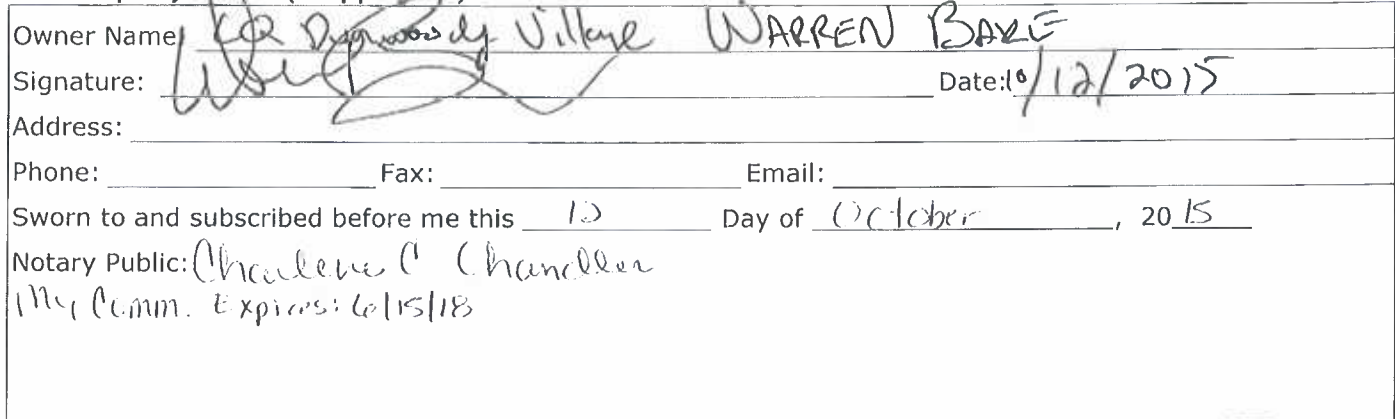 Owner Name Dunwoody Village WARREN BAKE
Signature: Date: 10/12/2015
Address:
Phone: Fax: Email:
Sworn to and subscribed before me this 12 Day of October, 20 15
Notary Public: Charlene C Chandler
My Comm. Expires: 6/15/18